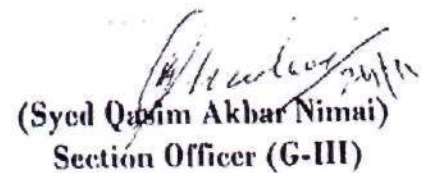 (Syed Qasim Akbar Nimai)
Section Officer (G-III)